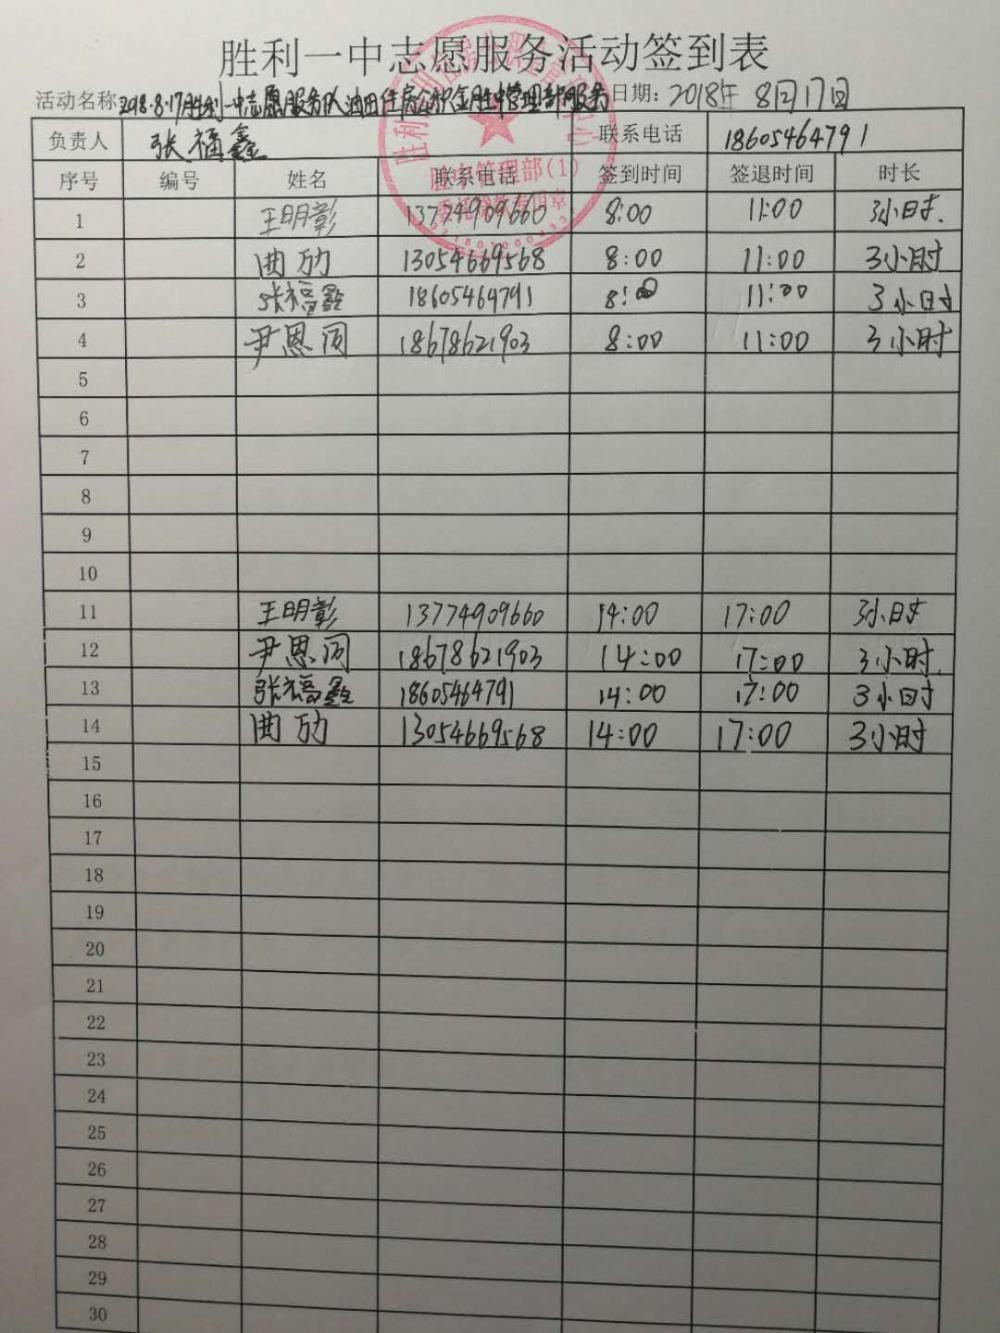 胜利一中志愿服务活动签到表
活动名称:2018.8.17胜利一中志愿服务队油田住房公积金胜中管理部服务 日期: 2018年 8月17日
负责人 张福鑫 联系电话 18605464791
序号 编号 姓名 联系电话 签到时间 签退时间 时长
1 王明彰 13774909660 8:00 11:00 3小时.
2 曲劢 13054669568 8:00 11:00 3小时
3 张福鑫 18605464791 8:00 11:00 3小时
4 尹恩 18678621903 8:00 11:00 3小时
5
6
7
8
9
10
11 王明彰 13774909660 14:00 17:00 3小时
12 尹恩 18678621903 14:00 17:00 3小时.
13 张福鑫 18605464791 14:00 17:00 3小时
14 曲劢 13054669568 14:00 17:00 3小时
15
16
17
18
19
20
21
22
23
24
25
26
27
28
29
30
胜中管理部(1)